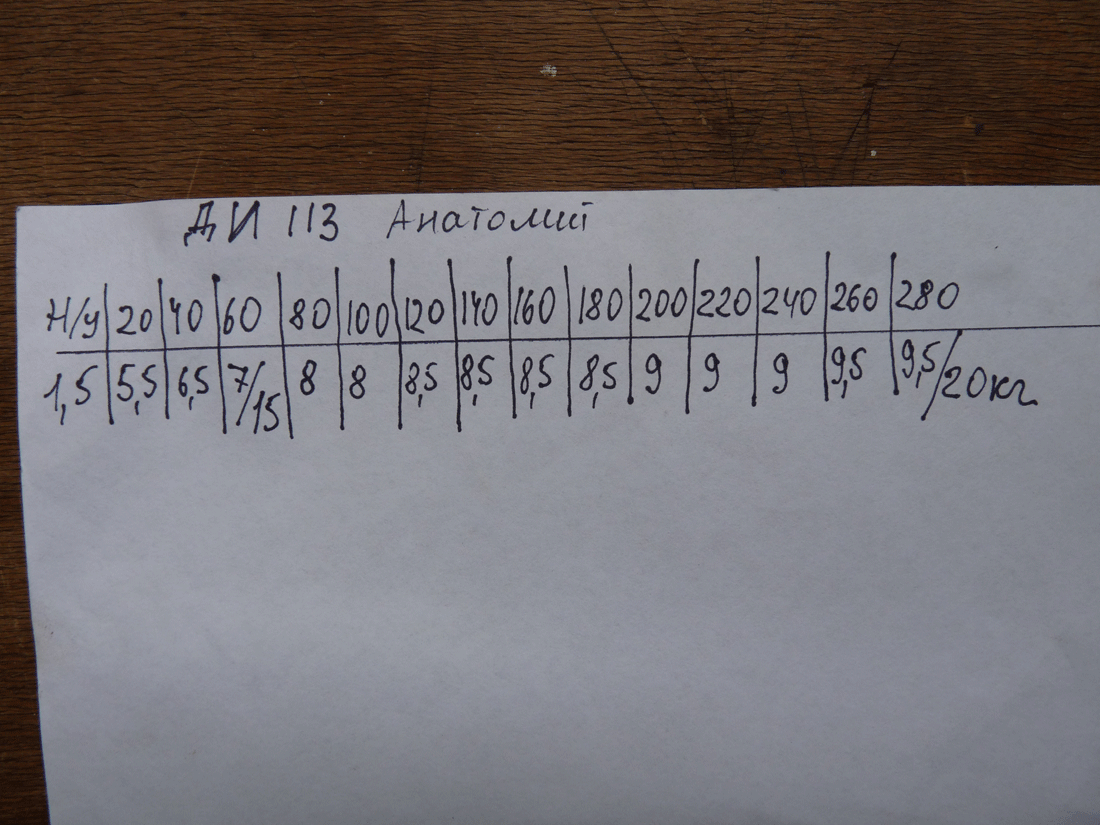 ДИ 113 Анатолий
Н/у 20 40 60 80 100 120 140 160 180 200 220 240 260 280
1,5 5,5 6,5 7/15 8 8 8,5 8,5 8,5 8,5 9 9 9 9,5 9,5/20кг